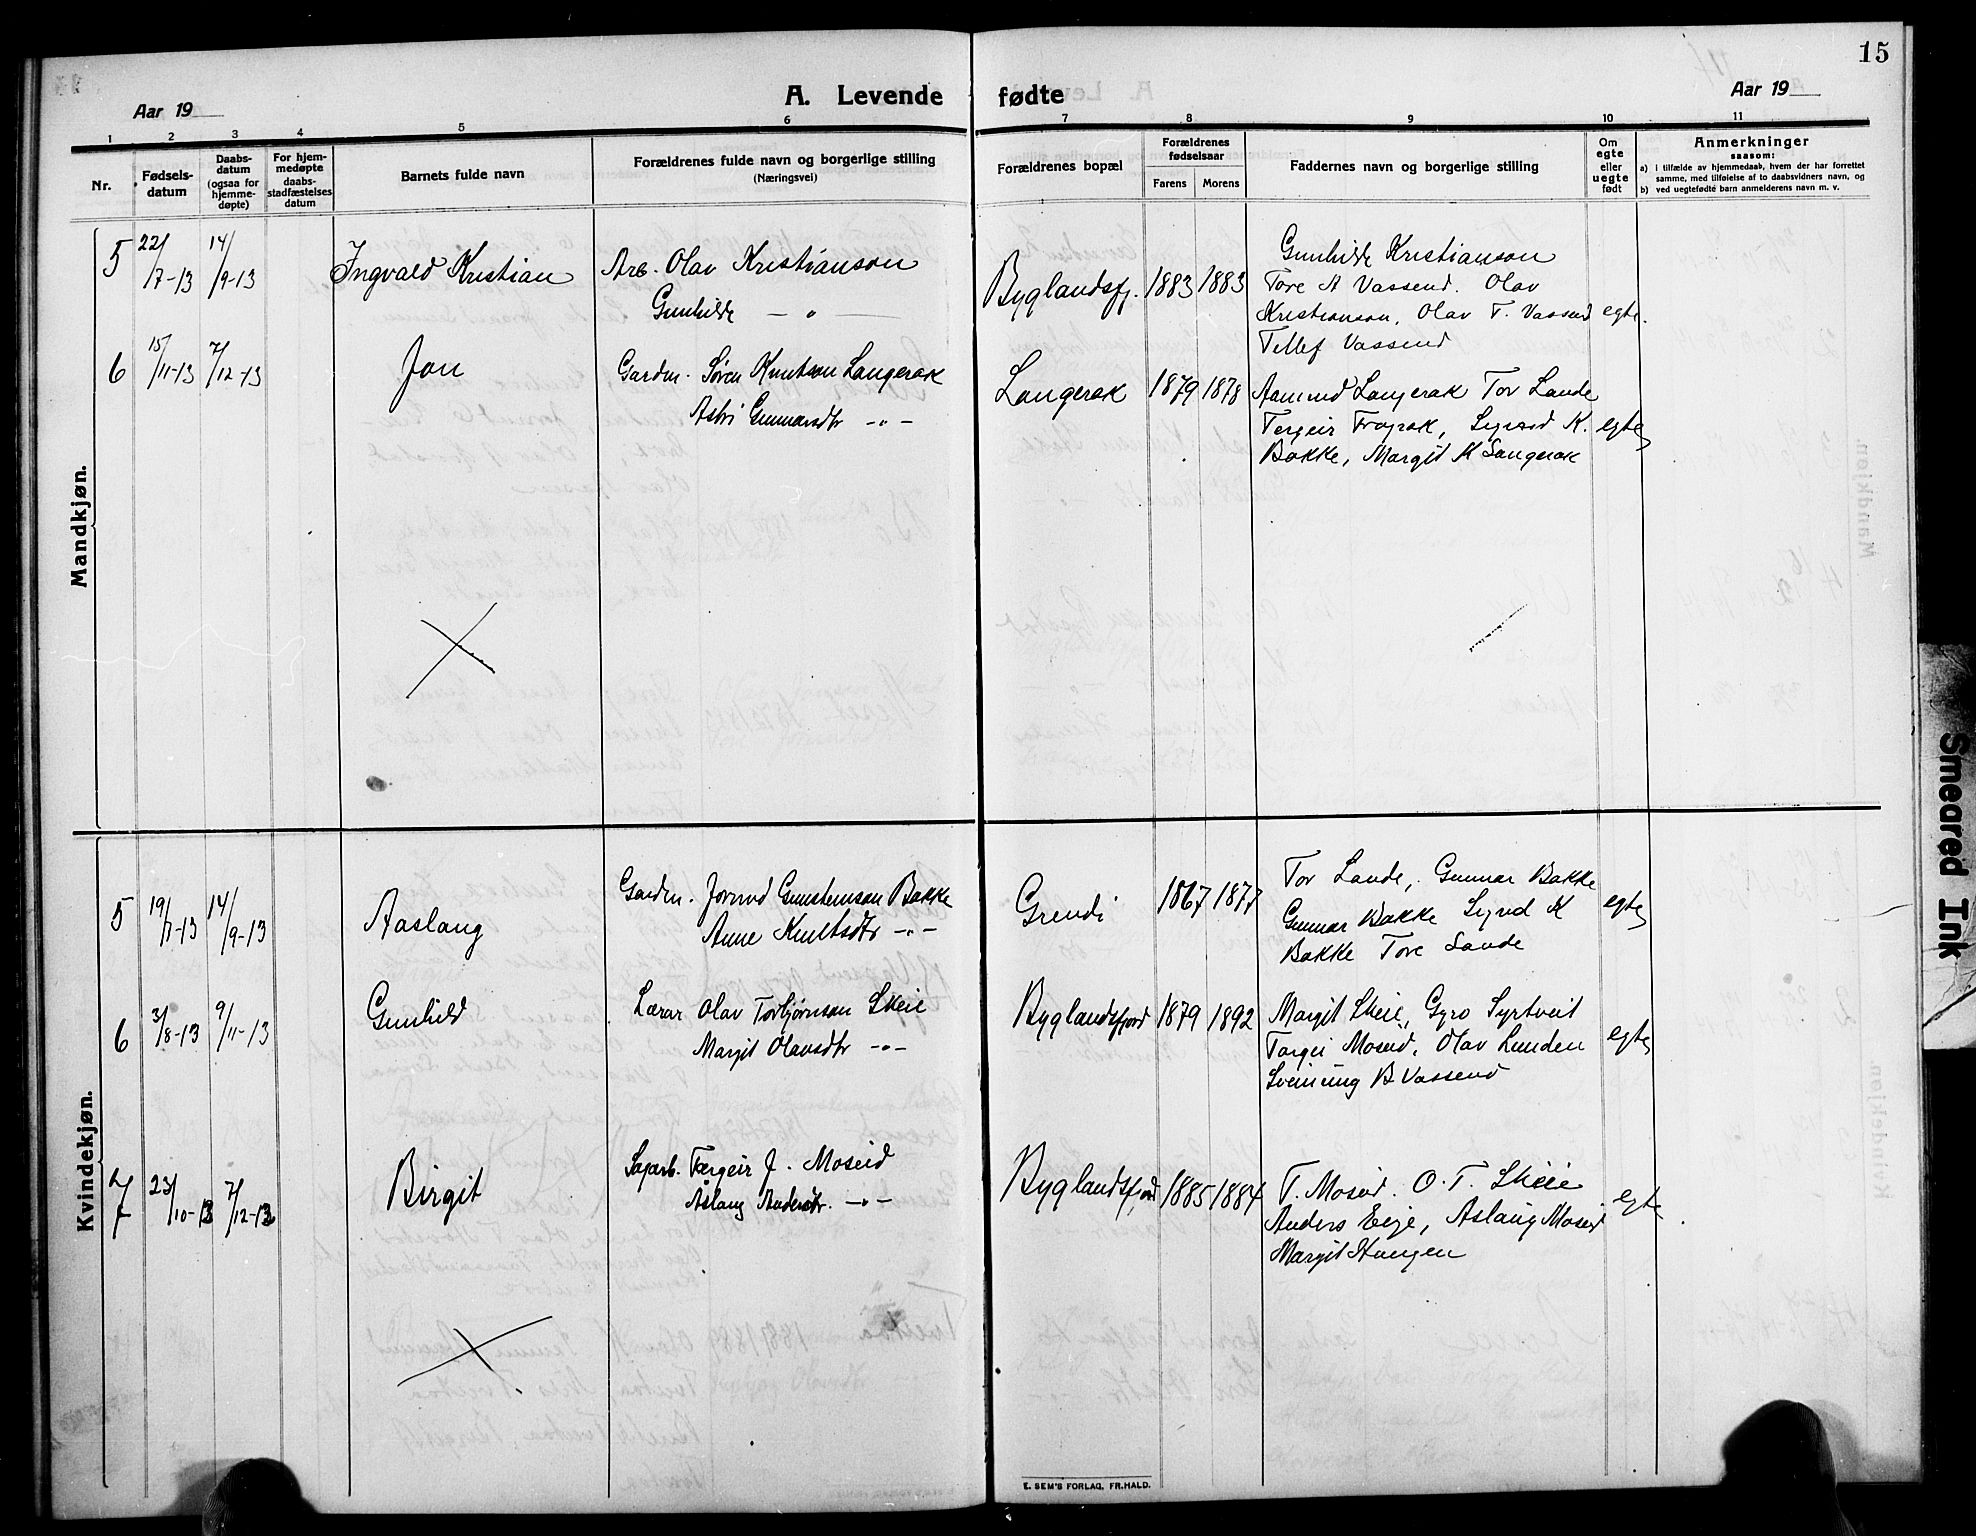 15
Aar 19
A. Levende fødte
Aar 19
1 2 3 4 5 6 7 8 9 10 11
Nr.
Fødsels-
datum
Daabs-
datum
(ogsaa for
hjemme-
døpte)
For hjem-
medøpte
daabs-
stadfæstelses
datum
Barnets fulde navn
Forældrenes fulde navn og borgerlige stilling
(Næringsvei)
Forældrenes bopæl
Forældrenes
fødselsaar
Farens Morens
Faddernes navn og borgerlige stilling
Om
egte
eller
uegte
født
Anmerkninger
saasom:
a) i tilfælde av hjemmedaab, hvem der har forrettet
samme, med tilføielse af to daabsvidners navn, og
b) ved uegtefødte barn anmelderens navn m. v.
Mandkjøn.
5 22/7-13 14/9-13 Ingvald Kristian
Arb. Olav Kristianson
Gunhilde — " —
Byglandsfj. 1883 1883
Gunhilde Kristianson
Tore A Vassend. Olav
Kristianson, Olav T. Vassend
Tellef Vassend
egte.
6 15/11-13 7/12-13 Jon
Gardm. Søren Knutson Langerak
Astri Gunnarsdtr -"-
Langerak 1879 1878
Aamund Langerak Tov Lande
Tergeir Frøyrak, K.
Bakke, Margit K Langerak
egte
Kvindekjøn.
5 19/7-13 14/9-13 Aaslaug
Gardm. Jorund Gunsteinson Bakke
Anne Knutsdtr -"-
Grendi 1867 1877
Tov Lande, Gunnar Bakke
Gunnar Bakke K
Bakke Tore Lande
egte
6 3/8-13 9/11-13 Gunhild
Lærar Olav Torbjørnson Skeie
Margit Olavsdtr -"-
Byglandsfjord 1879 1892
Margit Skeie, Gyro Syrtveit
Torgei Moseid, Olav Lunden
Sveinung B Vassend
egte
7 23/10-13 7/12-13 Birgit
Sagarb. Tergeir J. Moseid
Åslaug Andersdtr. -"-
Byglandsfjord 1885 1884
T. Moseid. O. T. Skeie
Anders Eeje, Aslaug Moseid
Margit Haugen
egte
E. SEM'S FORLAG, FR.HALD.
Smeared Ink